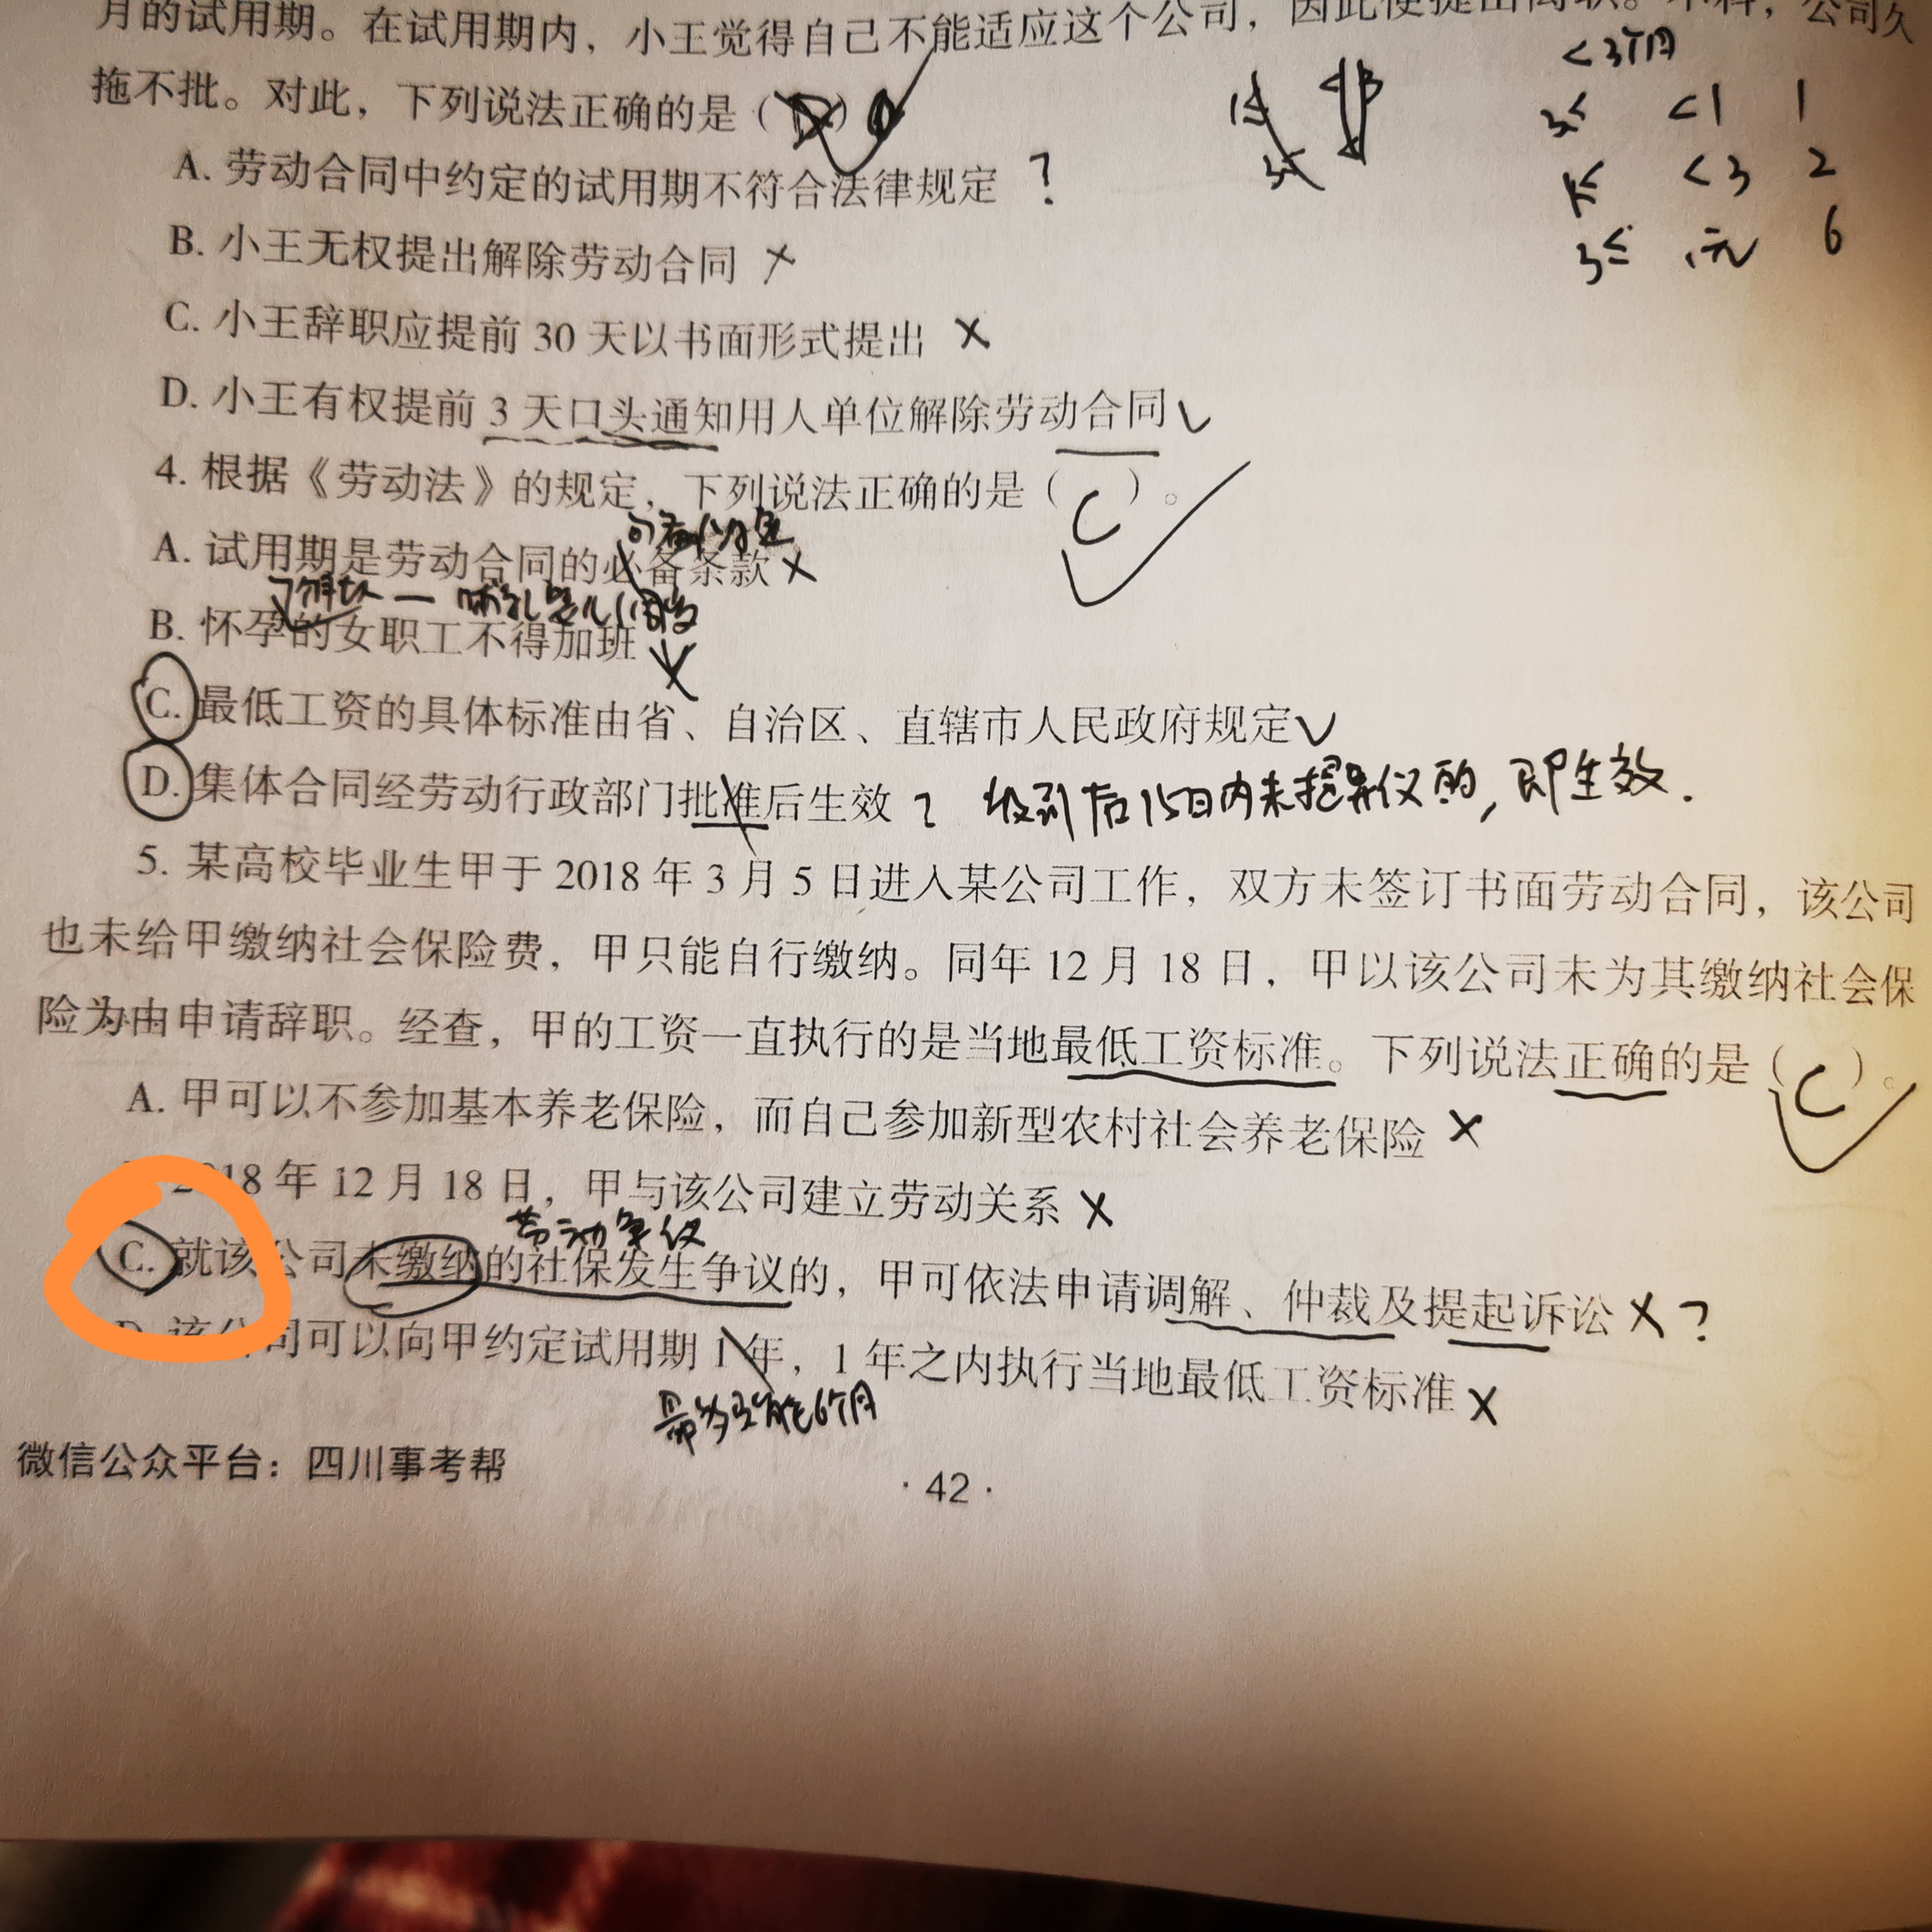 月的试用期。在试用期内，小王觉得自己不能适应这个公司，因此便提出离职。不料，公司久
<3个月
拖不批。对此，下列说法正确的是（ ）
3≤ <1 1
A. 劳动合同中约定的试用期不符合法律规定 ?
1≤ <3 2
B. 小王无权提出解除劳动合同 ×
3≤ 无 6
C. 小王辞职应提前 30 天以书面形式提出 ×
D. 小王有权提前 3 天口头通知用人单位解除劳动合同 √
4. 根据《劳动法》的规定，下列说法正确的是（ C ）。
A. 试用期是劳动合同的必备条款 ×
B. 怀孕的女职工不得加班 ×
C. 最低工资的具体标准由省、自治区、直辖市人民政府规定 √
D. 集体合同经劳动行政部门批准后生效 ? 收到后15日内未提异议的，即生效.
5. 某高校毕业生甲于 2018 年 3 月 5 日进入某公司工作，双方未签订书面劳动合同，该公司
也未给甲缴纳社会保险费，甲只能自行缴纳。同年 12 月 18 日，甲以该公司未为其缴纳社会保
险为由申请辞职。经查，甲的工资一直执行的是当地最低工资标准。下列说法正确的是（ C ）。
A. 甲可以不参加基本养老保险，而自己参加新型农村社会养老保险 ×
2018 年 12 月 18 日，甲与该公司建立劳动关系 ×
劳动争议
C. 就该公司未缴纳的社保发生争议的，甲可依法申请调解、仲裁及提起诉讼 × ?
D. 该公司可以向甲约定试用期 1 年，1 年之内执行当地最低工资标准 ×
最多只能6个月
微信公众平台：四川事考帮
· 42 ·